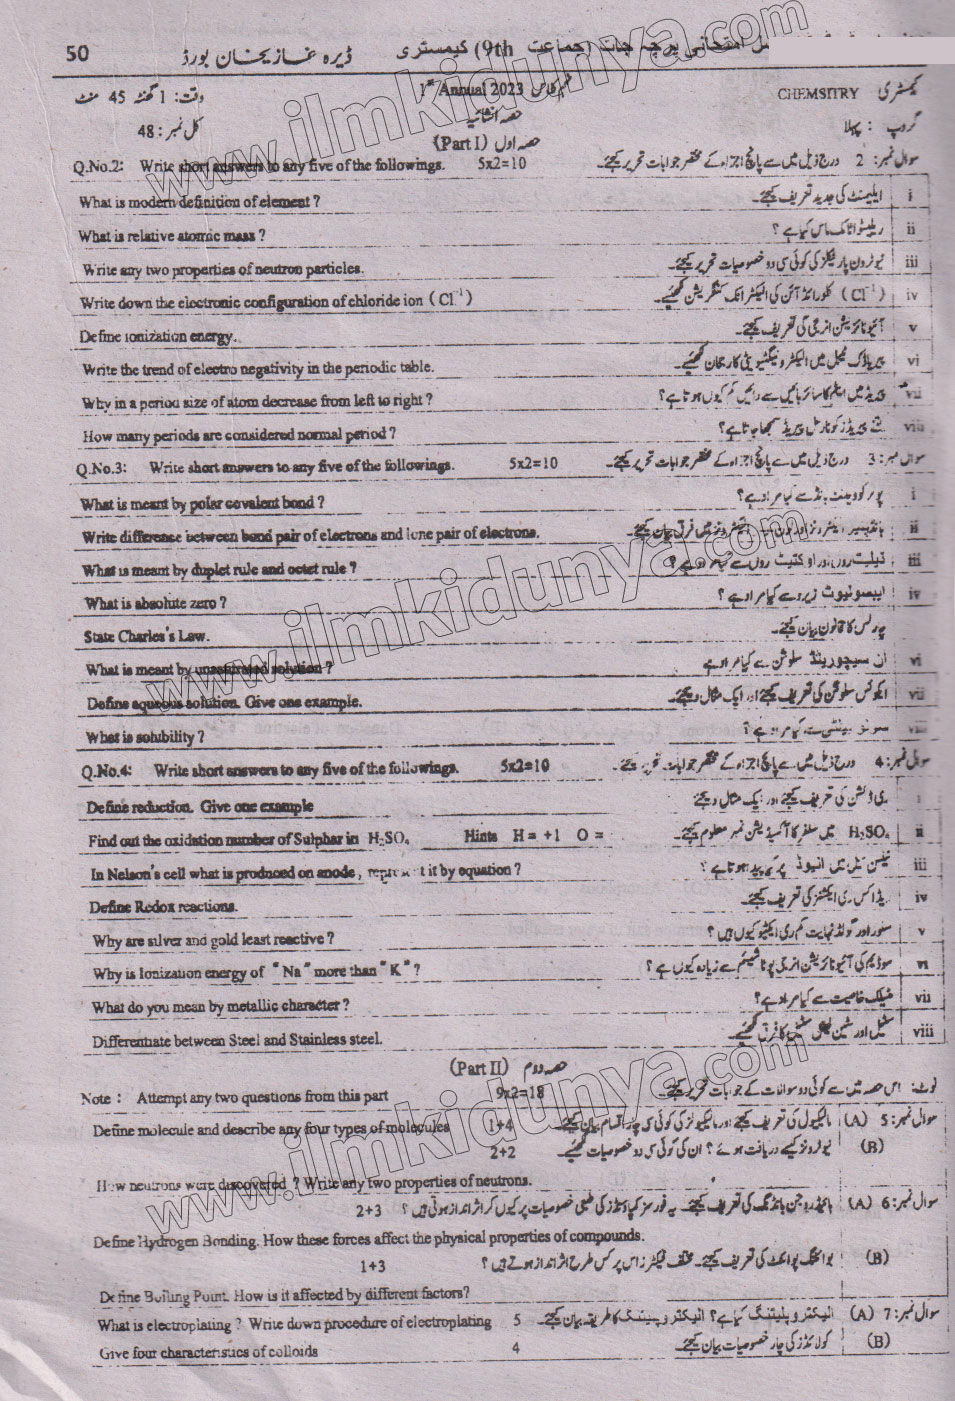 50 ڈیرہ غازیخان بورڈ (جماعت 9th) کیمسٹری
وقت: 1 گھنٹہ 45 منٹ 1st Annual 2023 CHEMSITRY کیمسٹری
کل نمبر: 48 حصہ انشائیہ گروپ: پہلا
(Part I) حصہ اول
Q.No.2: Write short answers to any five of the followings. 5x2=10 سوال نمبر: 2 درج ذیل میں سے پانچ اجزاء کے مختصر جوابات تحریر کیجئے۔
What is modern definition of element ? ایلیمنٹ کی جدید تعریف کیجئے۔ i
What is relative atomic mass ? ریلیٹو اٹامک ماس کیا ہے ؟ ii
Write any two properties of neutron particles. نیوٹرون پارٹیکلز کی کوئی سی دو خصوصیات تحریر کیجئے۔ iii
Write down the electronic configuration of chloride ion ( Cl⁻¹ ) ( Cl⁻¹ ) کلورائڈ آئن کی الیکٹرانک کنفگریشن لکھئیے۔ iv
Define ionization energy. آئیونائزیشن انرجی کی تعریف کیجئے۔ v
Write the trend of electro negativity in the periodic table. پیریاڈک ٹیبل میں الیکٹرونیگٹیویٹی کا رجحان لکھئیے۔ vi
Why in a period size of atom decrease from left to right ? پیریڈ میں ایٹم کا سائز بائیں سے دائیں کم کیوں ہوتا ہے؟ vii
How many periods are considered normal period ? کتنے پیریڈز کو نارمل پیریڈ سمجھا جاتا ہے؟ viii
Q.No.3: Write short answers to any five of the followings. 5x2=10 سوال نمبر: 3 درج ذیل میں سے پانچ اجزاء کے مختصر جوابات تحریر کیجئے۔
What is meant by polar covalent bond ? پولر کوویلنٹ بانڈ سے کیا مراد ہے؟ i
Write difference between bond pair of electrons and lone pair of electrons. الیکٹرونز میں فرق بیان کیجئے۔ ii
What is meant by duplet rule and octet rule ? ڈپلیٹ رول اور اوکٹیٹ رول سے کیا مراد ہے ؟ iii
What is absolute zero ? ایبسولیوٹ زیرو سے کیا مراد ہے ؟ iv
State Charles's Law. چارلس کا قانون بیان کیجئے۔
What is meant by unsaturated solution ? ان سیچوریٹڈ سلوشن سے کیا مراد ہے vi
Define aqueous solution. Give one example. ایکوئس سلوشن کی تعریف کیجئے اور ایک مثال دیجئے۔ vii
What is solubility ? سولیوبیلٹی سے کیا مراد ہے ؟ viii
Q.No.4: Write short answers to any five of the followings. 5x2=10 سوال نمبر: 4 درج ذیل میں سے پانچ اجزاء کے مختصر جوابات تحریر کیجئے۔
Define reduction. Give one example ریڈکشن کی تعریف کیجئے اور ایک مثال دیجئے i
Find out the oxidation number of Sulphar in H₂SO₄ Hints H = +1 O = H₂SO₄ میں سلفر کا آکسیڈیشن نمبر معلوم کیجئے۔ ii
In Nelson's cell what is produced on anode, represent it by equation ? نیلسن سیل میں اینوڈ پر کیا پیدا ہوتا ہے ؟ iii
Define Redox reactions. ریڈاکس ری ایکشنز کی تعریف کیجئے۔ iv
Why are silver and gold least reactive ? سلور اور گولڈ نہایت کم ری ایکٹیو کیوں ہیں ؟ v
Why is Ionization energy of "Na" more than "K" ? سوڈیم کی آئیونائزیشن انرجی پوٹاشیم سے زیادہ کیوں ہے ؟ vi
What do you mean by metallic character ? میٹلک خاصیت سے کیا مراد ہے؟ vii
Differentiate between Steel and Stainless steel. سٹیل اور سٹین لیس سٹیل کا فرق لکھئیے۔ viii
(Part II) حصہ دوم
Note : Attempt any two questions from this part 9x2=18 نوٹ: اس حصہ میں سے کوئی دو سوالات کے جوابات تحریر کیجئے۔
Define molecule and describe any four types of molecules 1+4 سوال نمبر: 5 (A) مالیکیول کی تعریف کیجئے اور مالیکیولز کی کوئی سی چار اقسام بیان کیجئے۔
2+2 (B) نیوٹرونز کیسے دریافت ہوئے ؟ ان کی کوئی سی دو خصوصیات لکھئیے۔
How neutrons were discovered ? Write any two properties of neutrons.
2+3 سوال نمبر: 6 (A) ہائیڈروجن بانڈنگ کی تعریف کیجئے۔ یہ فورسز کمپاؤنڈز کی طبعی خصوصیات پر کیوں کر اثر انداز ہوتی ہیں ؟
Define Hydrogen Bonding. How these forces affect the physical properties of compounds.
1+3 (B) بوائلنگ پوائنٹ کی تعریف کیجئے۔ مختلف فیکٹرز اس پر کس طرح اثر انداز ہوتے ہیں ؟
Define Boiling Point. How is it affected by different factors?
What is electroplating ? Write down procedure of electroplating 5 سوال نمبر: 7 (A) الیکٹروپلیٹنگ کیا ہے؟ الیکٹروپلیٹنگ کا طریقہ بیان کیجئے۔
Give four characteristics of colloids 4 (B) کولائڈز کی چار خصوصیات بیان کیجئے۔
www.ilmkidunya.com
www.ilmkidunya.com
www.ilmkidunya.com